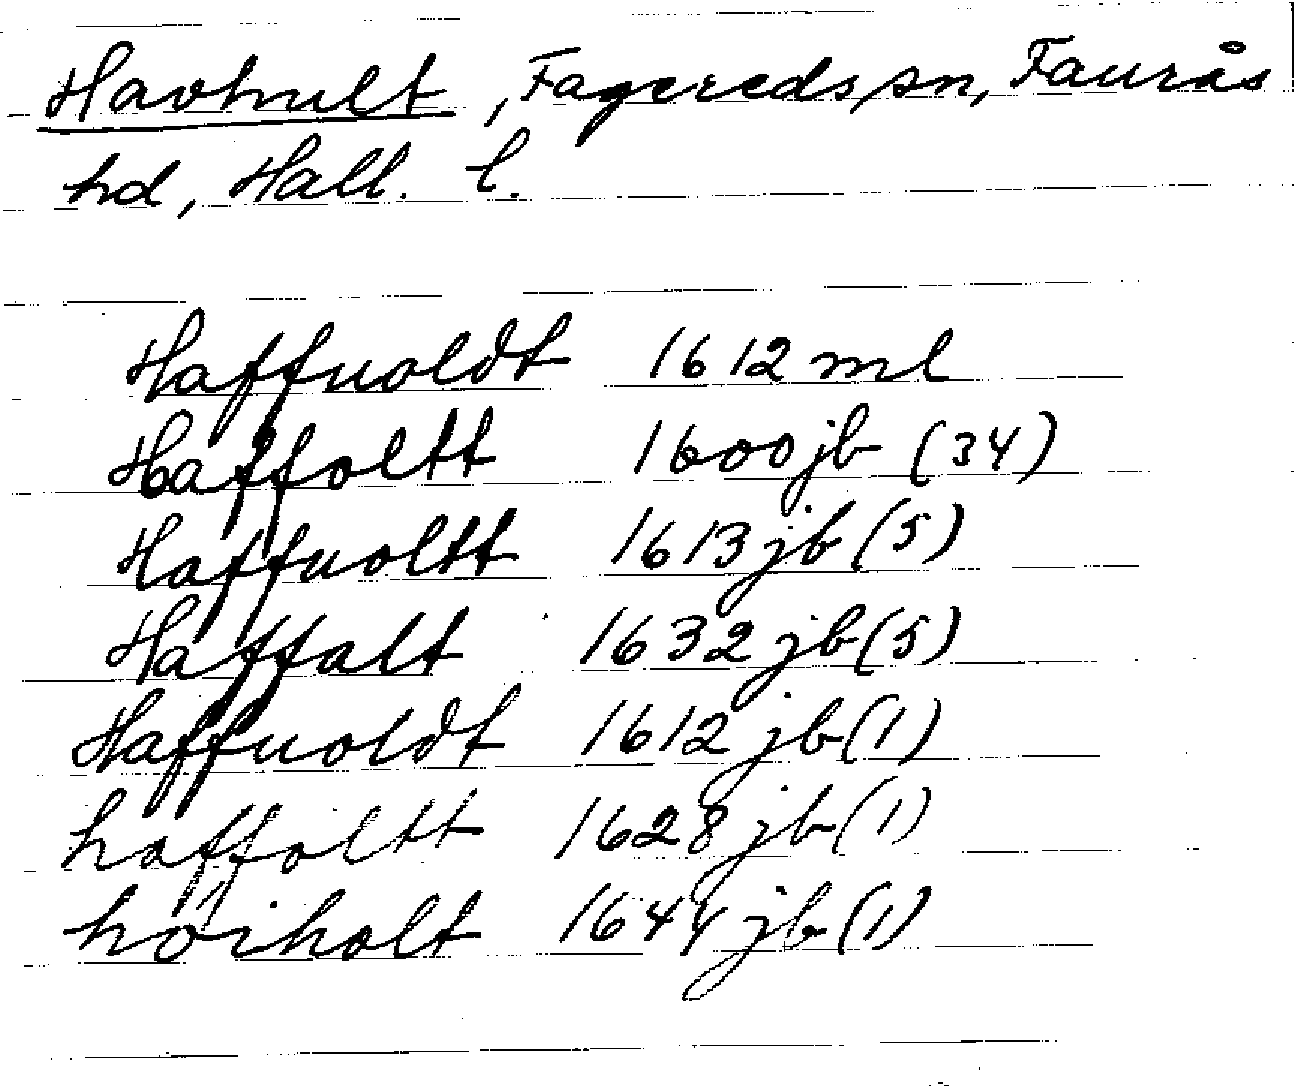 Havhult, Fagereds sn, Faurås
hd, Hall. l.
Haffuoldt 1612 ml
Haffoltt 1600 jb (34)
Haffuoltt 1613 jb (5)
Haffalt 1632 jb (5)
Haffuoldt 1612 jb (1)
haffoltt 1628 jb (1)
hóiholt 1644 jb (1)